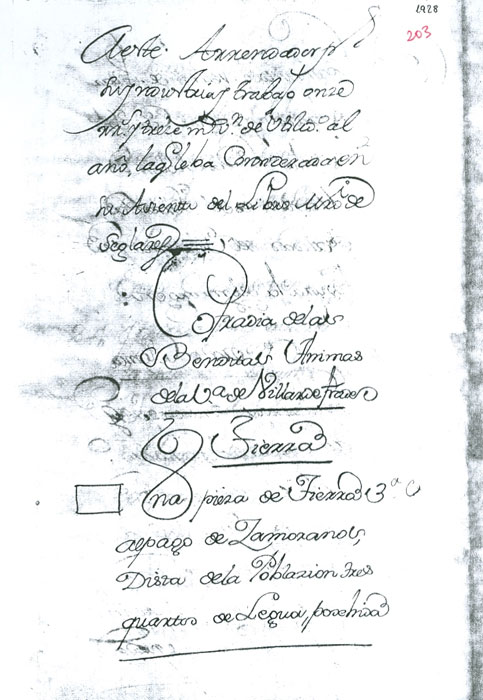 1928
203
Aeste Arrendador pr
su yndustria y trabajo onze
rrs y treze mrs vn de Utilidd al
año, la qe leba Considerada en
su Asiento del Libro Mro de
Seglares
Cofradia delas
Benditas Animas
dela Va de Villardefrades
Tierra
Una pieza de Tierra 3a C
al pago de Zamoranos,
Dista dela Poblazion tres
quartos de Legua, poseheida